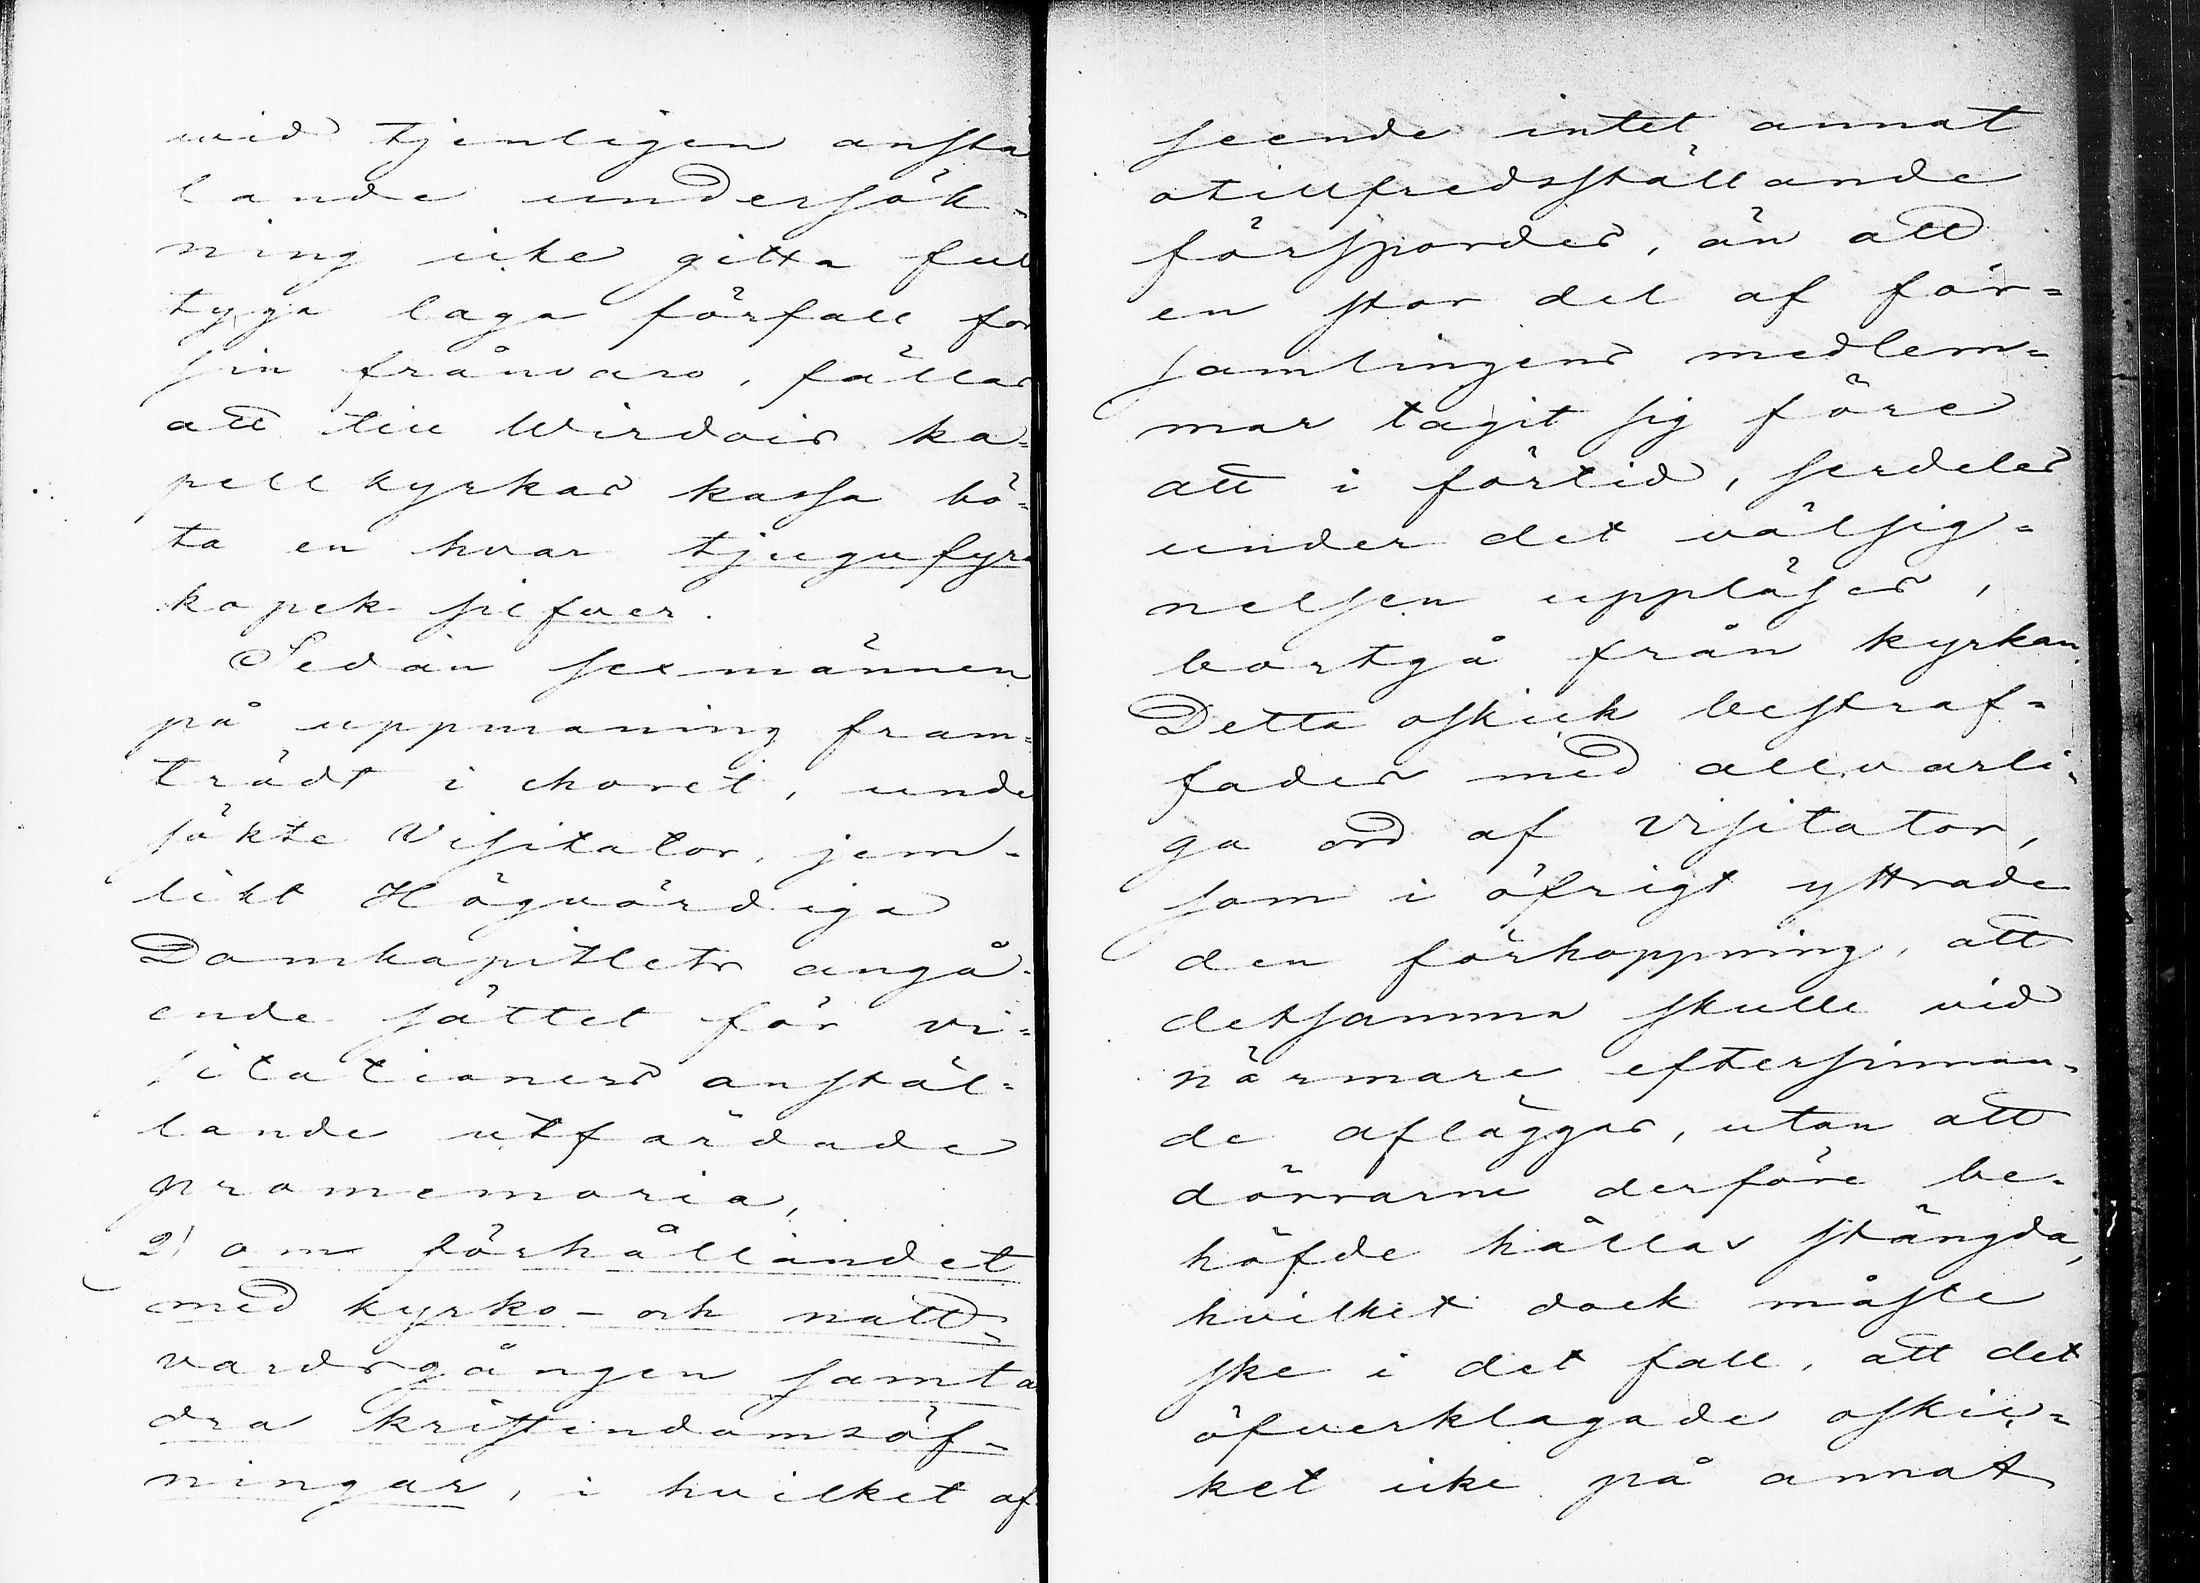 vid tjenligen anstä
lande undersök-
ning icke gitta ful
tyga laga förfall för
sin frånvaro, fällas
att till Wirdois ka-
pellkyrkas kassa bö-
ta en hvar tjugufyra
kopek silfver.
Sedan sexmännen
på uppmaning fram-
trädt i choret, unde
sökte Visitator, jem-
likt Högvördiga
Domkapitlets angå-
ende sättet för vi-
sitationers anstäl-
lande utfärdade
promemoria,
2) om förhållandet
med kyrko- och natt-
vardsgången samt a
dra kristendomsöf-
ningar, i hvilket af
seende intet annat
otillfredsställande
förspordes, än att
en stor del af för-
samlingens medlem-
mar tagit sig före
att i förtid, serdeles
under det välsig-
nelsen uppläses,
bortgå från kyrkan.
Detta oskick bestraf-
fades med allvarli-
ga ord af Visitator,
som i öfrigt yttrade
den förhoppning, att
detsamma skulle vid
närmare eftersinnan-
de afläggas, utan att
dörrarne derföre be-
höfde hållas stängda,
hvilket dock måste
ske i det fall, att det
öfverklagade oskic-
ket icke på annat